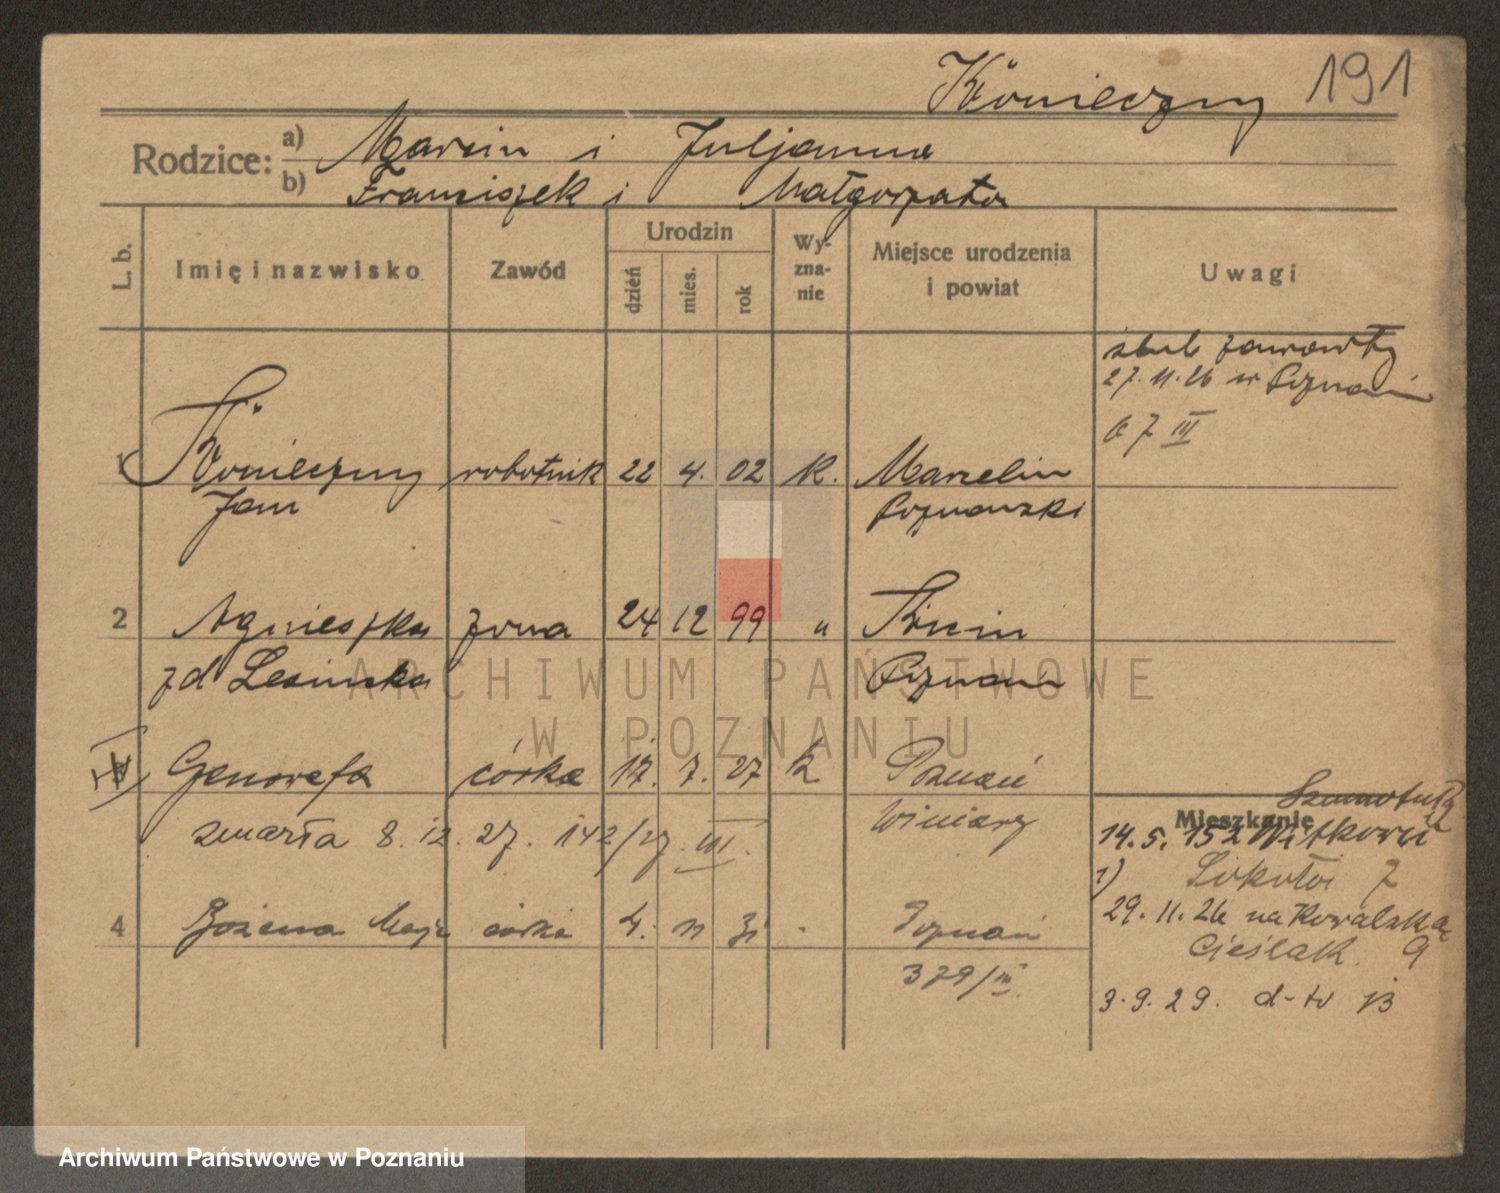 Konieczny 191
Rodzice: a) Marcin i Juljanna
b) Franciszek i Małgorzata
L. b.
Imię i nazwisko
Zawód
Urodzin
dzień
mies.
rok
Wy-
zna-
nie
Miejsce urodzenia
i powiat
Uwagi
ślub zawarty
27.11.26 w Poznaniu
67 III
1 Konieczny robotnik 22 4. 02 k. Marcelin
Jan Poznański
2 Agnieszka żona 24 12 99 "
zd Lesińska Poznań
Genowefa córka 17. 7. 27 k Poznań
Winiary
zmarła 8.12.27. 142/27. III.
4 Bożena córka 4. 11 31 Poznań
379/III.
Szamotuły
Mieszkanie
14.5.152 Witkowo
1) 7
29.11.26 na Kowalską
Cieślak. 9
3.9.29. d-to 13
ARCHIWUM PAŃSTWOWE
W POZNANIU
Archiwum Państwowe w Poznaniu